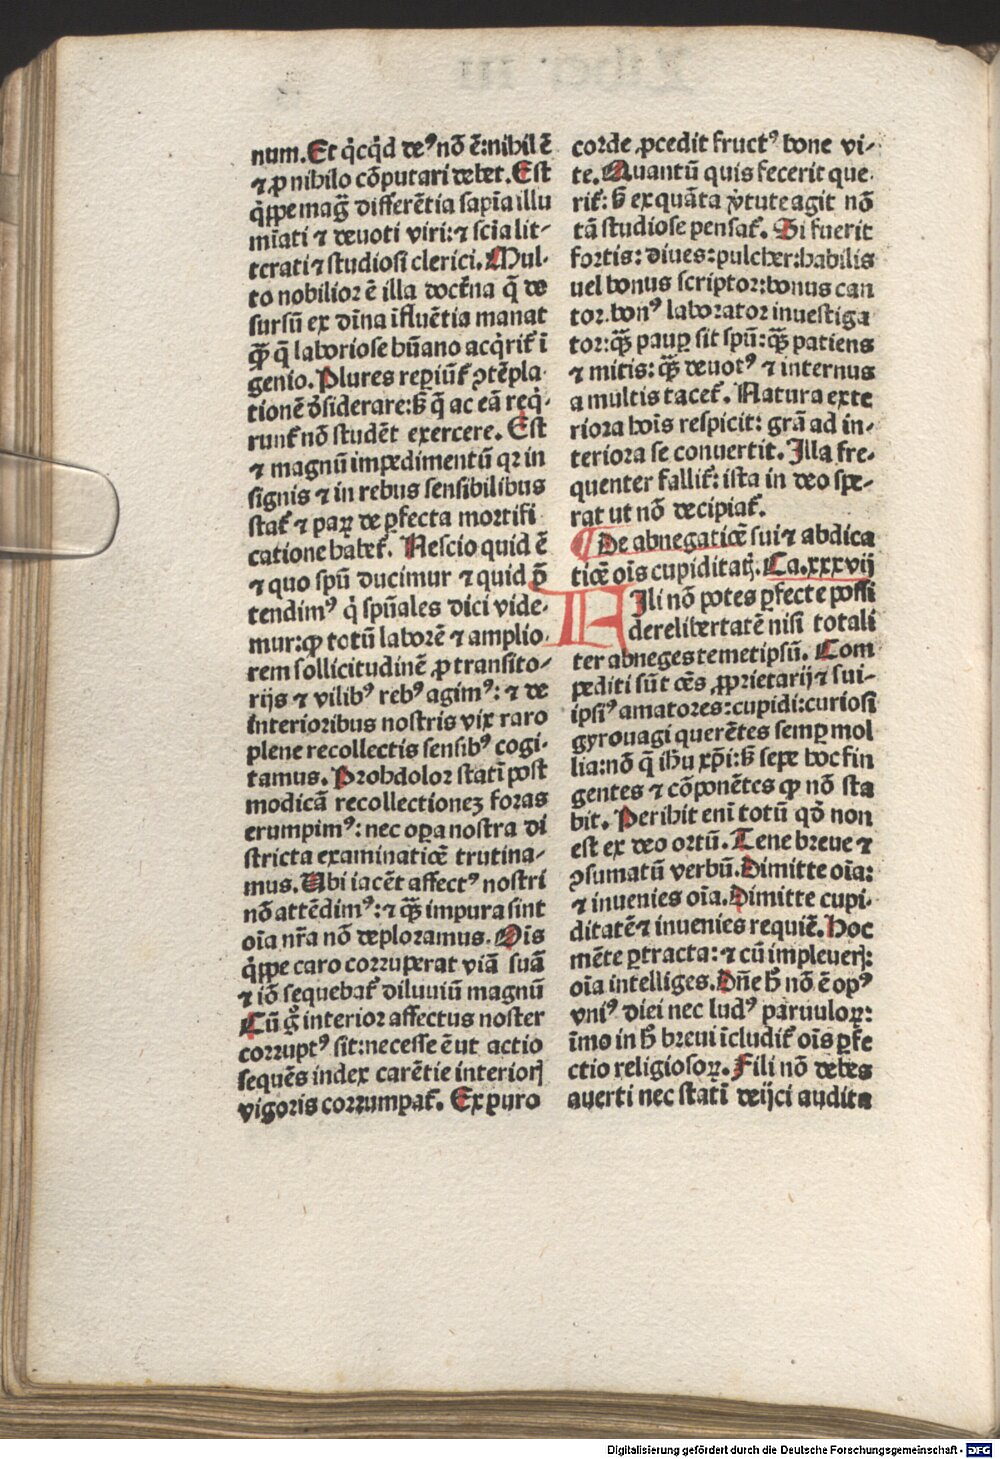 num. Et q̇cq̇d deꝰ nō ē: nihil ē
⁊ ꝓ nihilo cōputari debet. Est
q̇ppe maḡ differētia sapīa illu
mīati ⁊ deuoti viri: ⁊ scīa lit-
terati ⁊ studiosi clerici. Mul-
to nobilior ē illa doctīna q̄ de
sursū ex dīna īfluētia manat
q̄ꝫ q̄ laboriose hūano acq̇rit᷑ ī
genio. Plures reperiūt᷑ ꝯtēpla-
tionē d̓siderare: sꝫ q̄ ac eā req̇-
runt᷑ nō studēt exercere. Est
⁊ magnū impedimentū qꝛ in
signis ⁊ in rebus sensibilibus
stat᷑ ⁊ paꝝ de ꝑfecta mortifi
catione habet᷑. Nescio quid ē
⁊ quo spū ducimur ⁊ quid p̄
tendimꝰ q̇ spūales dici vide-
mur: ꝙ totū laborē ⁊ amplio-
rem sollicitudinē ꝓ transito-
rijs ⁊ vilibꝰ rebꝰ agimꝰ: ⁊ de
interioribus nostris vix raro
plene recollectis sensibꝰ cogi-
tamus. Prohdolor statī post
modicā recollectioneꝫ foras
erumpimꝰ: nec oꝑa nostra di
stricta examinatiōe trutina-
mus. Ubi iacēt affectꝰ nostri
nō attēdimꝰ: ⁊ q̄ꝫ impura sint
oīa nr̄a nō deploramus. Oīs
q̇ppe caro corruperat viā suā
⁊ iō sequebat᷑ diluuiū magnū
Cū g̊ interior affectus noster
corruptꝰ sit: necesse ē ut actio
sequēs index carētie interiorꝭ
vigoris corrumpat᷑. Ex puro
corde ꝓcedit fructꝰ bone vi-
te. Quantū quis fecerit que-
rit᷑: sꝫ ex quāta v̓tute agit nō
tā studiose pensat᷑. Si fuerit
fortis: diues: pulcher: habilis
uel bonus scriptor: bonus can
tor. bonꝰ laborator inuestiga
tor: q̄ꝫ pauꝑ sit spū: q̄ꝫ patiens
⁊ mitis: q̄ꝫ deuotꝰ ⁊ internus
a multis tacet᷑. Natura exte
riora hoīs respicit: grā ad in-
teriora se conuertit. Illa fre-
quenter fallit᷑: ista in deo spe-
rat ut nō decipiat᷑.
¶ De abnegatiōe sui ⁊ abdica
tiōe oīs cupiditatꝭ. Ca. xxxvij
FIli nō potes ꝑfecte possi
dere libertatē nisi totali
ter abneges temetipsū. Com
pediti sūt oēs ꝓprietarij ⁊ sui-
ipsiꝰ amatores: cupidi: curiosi
gyrouagi querētes semꝑ mol
lia: nō q̄ ihū xp̄i: sꝫ sepe hoc fin
gentes ⁊ cōponētes ꝙ nō sta
bit. Peribit enī totū qd̓ non
est ex deo ortū. Tene breue ⁊
ꝯsumatū verbū. Dimitte oīa:
⁊ inuenies oīa. Dimitte cupi-
ditatē ⁊ inuenies requiē. Hoc
mēte ꝑtracta: ⁊ cū impleuerꝭ:
oīa intelliges. Dn̄e hꝭ nō ē opꝰ
vniꝰ diei nec ludꝰ paruuloꝝ:
īmo in hꝭ breui īcludit᷑ oīs ꝑfe
ctio religiosoꝝ. Fili nō debes
auerti nec statī deijci audita
Digitalisierung gefördert durch die Deutsche Forschungsgemeinschaft - DFG